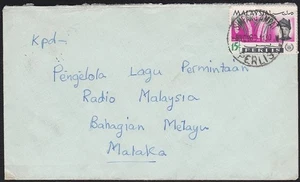 Kpd-
Pengelola Lagu Permintaan
Radio Malaysia
Bahagian Melayu
Malaka
MALAYSIA
15c
PERLIS
PERLIS